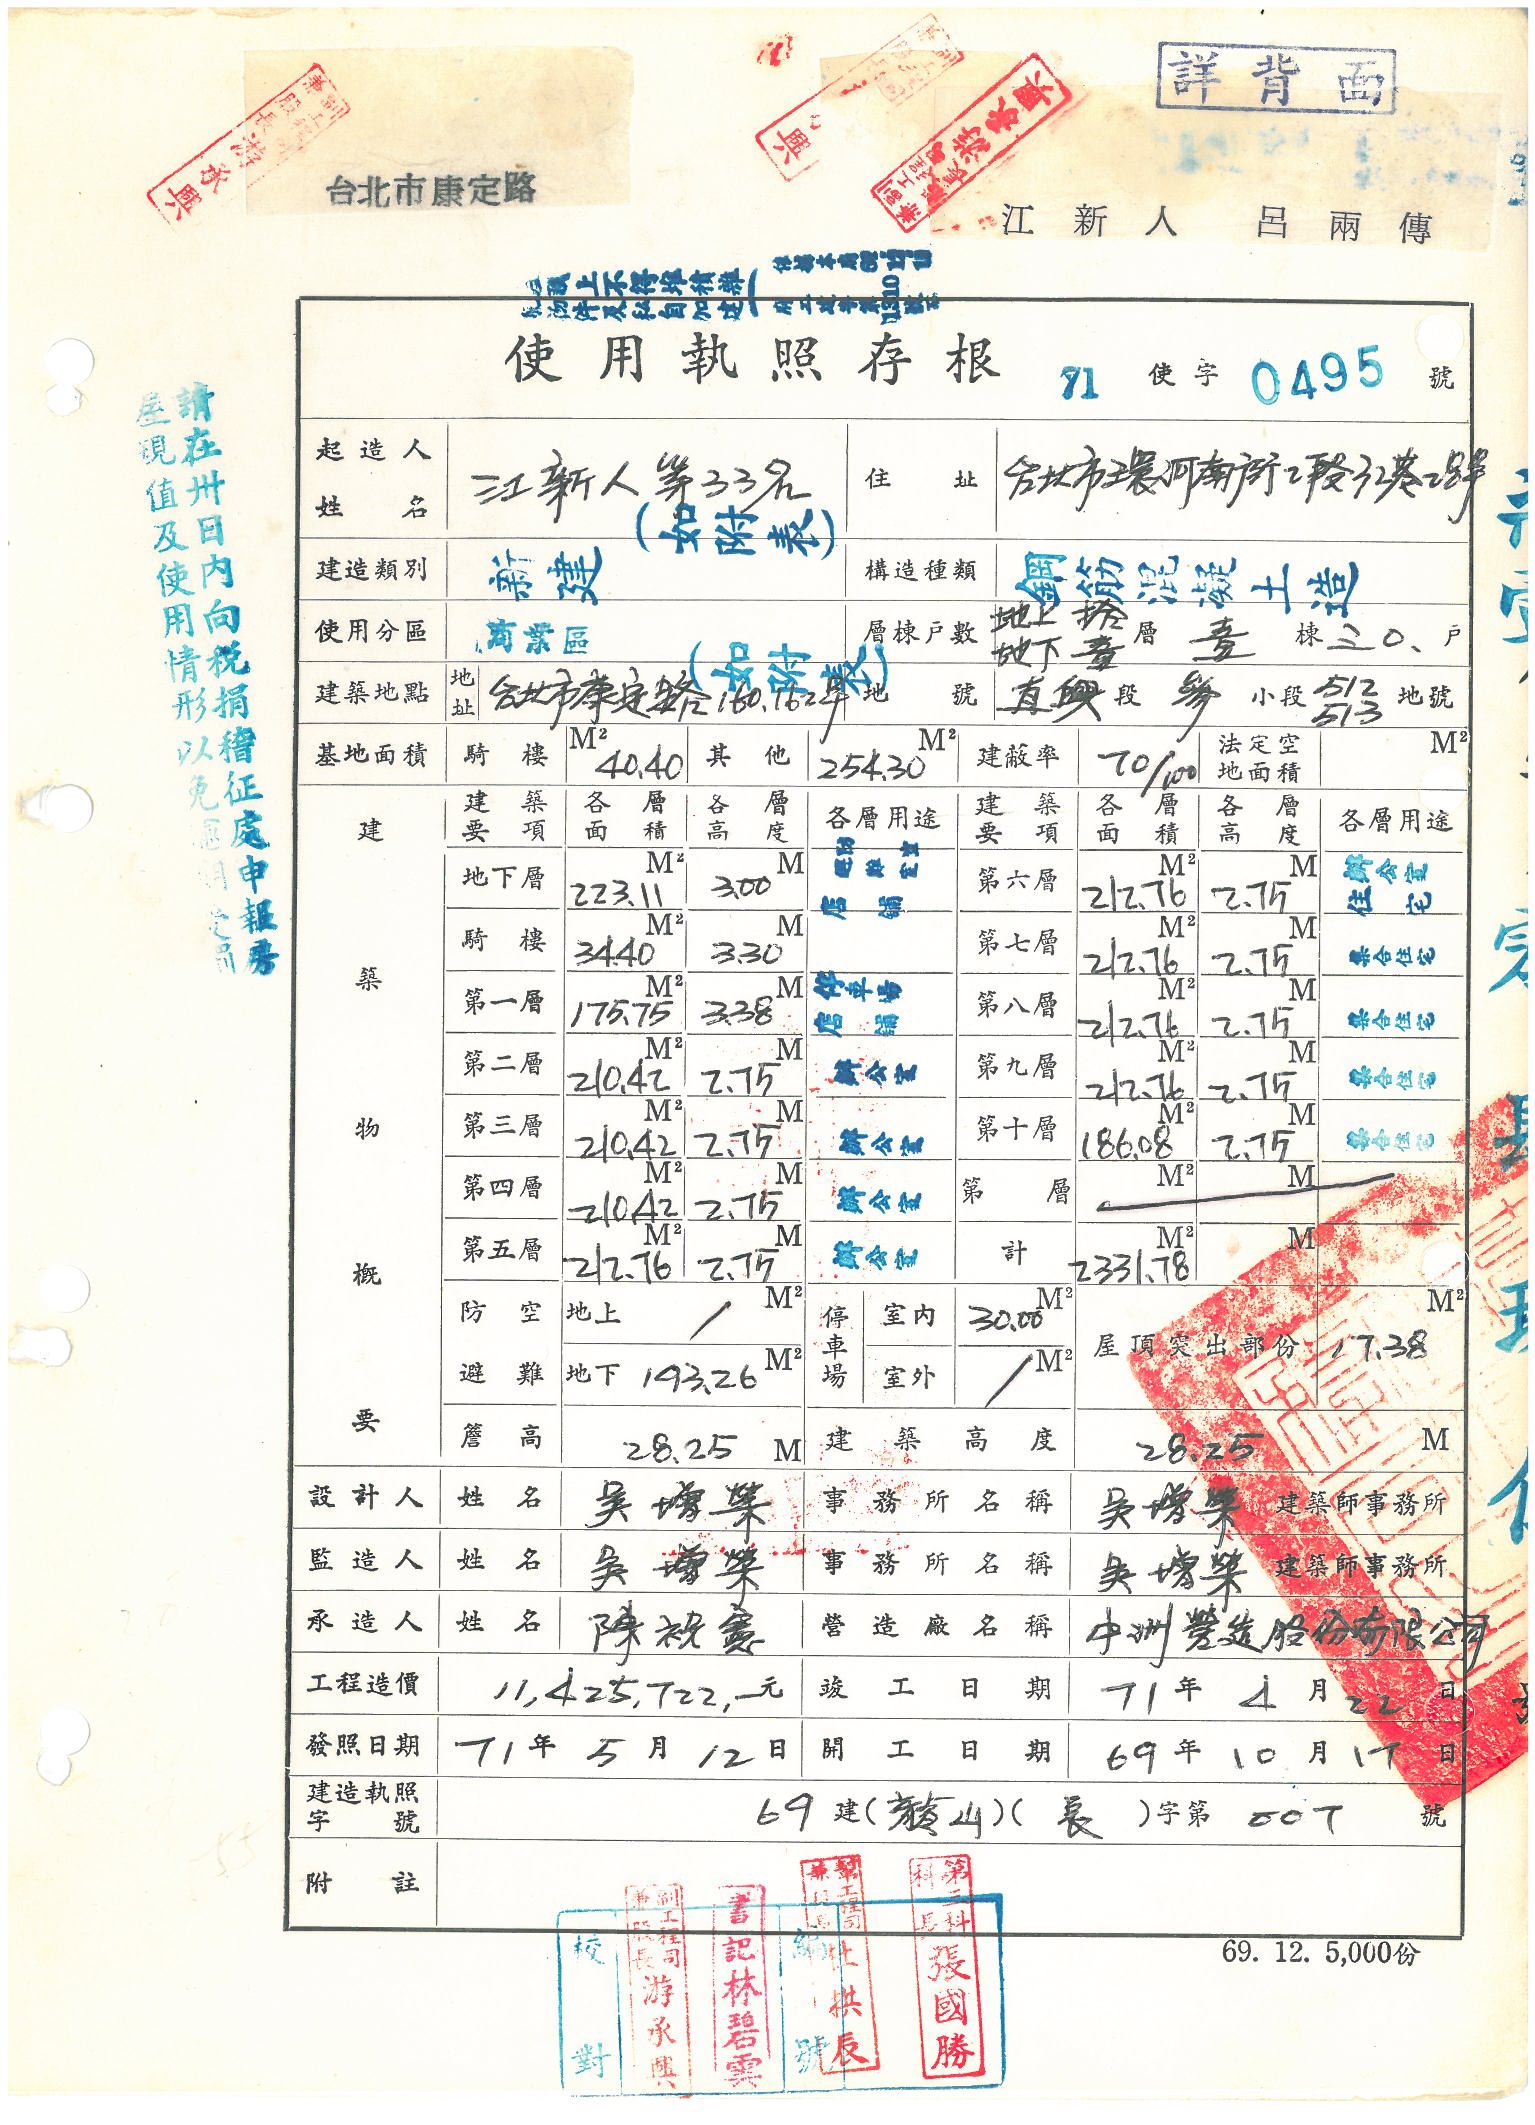 詳背面
台北市康定路
江新人 呂兩傳
使用執照存根 71 使字 0495 號
請在卅日內向稅捐稽征處申報房
屋現值及使用情形以免
起造人姓名 江新人等33名 (如附表) 住址 台北市環河南街2段
建造類別 新建 構造種類 鋼筋混凝土造
使用分區 商業區 層棟戶數 地上拾 地下壹 層 壹 棟 30. 戶
建築地點 地址 台北市康定路160.162號 (如附表) 地號 直興段 參 小段 512 513 地號
基地面積 騎樓 40.40 M² 其他 254.30 M² 建蔽率 70/100 法定空地面積 M²
建築物概要
建築要項 各層面積 各層高度 各層用途 建築要項 各層面積 各層高度 各層用途
地下層 223.11 M² 3.00 M 店舖 第六層 212.76 M² 2.75 M 辦公室 住宅
騎樓 34.40 M² 3.30 M 第七層 212.76 M² 2.75 M 集合住宅
第一層 175.75 M² 3.38 M 停車場 店舖 第八層 212.76 M² 2.75 M 集合住宅
第二層 210.42 M² 2.75 M 辦公室 第九層 212.76 M² 2.75 M 集合住宅
第三層 210.42 M² 2.75 M 辦公室 第十層 186.08 M² 2.75 M 集合住宅
第四層 210.42 M² 2.75 M 辦公室 第 層 M² M
第五層 212.76 M² 2.75 M 辦公室 計 2331.78 M² M
防空避難 地上 / M² 停車場 室內 30.00 M² 屋頂突出部份 17.38 M²
地下 193.26 M² 室外 / M²
簷高 28.25 M 建築高度 28.25 M
設計人 姓名 吳增榮 事務所名稱 吳增榮 建築師事務所
監造人 姓名 吳增榮 事務所名稱 吳增榮 建築師事務所
承造人 姓名 營造廠名稱 中洲營造股份有限公司
工程造價 11,425,722,- 元 竣工日期 71年4月22日
發照日期 71年5月12日 開工日期 69年10月17日
建造執照字號 69 建( )( 長 )字第 007 號
附註
69. 12. 5,000份
校對
編號
副工程司兼股長 游承興
書記 林碧雲
第三科科長 張國勝